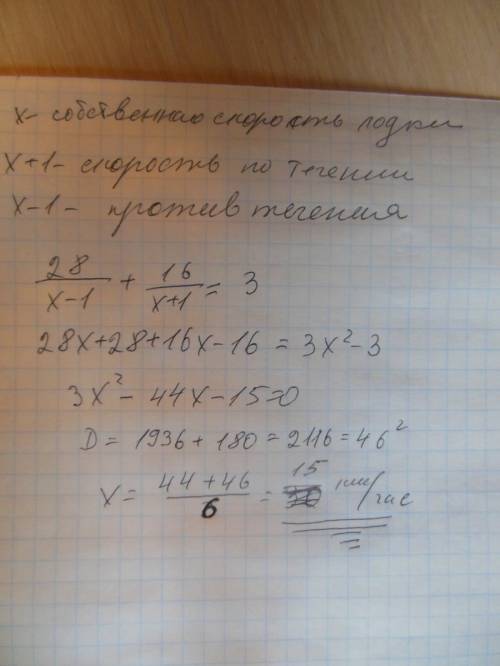 x - собственная скорость лодки
x+1 - скорость по течении
x-1 - против течения
28/(x-1) + 16/(x+1) = 3
28x+28+16x-16 = 3x²-3
3x²-44x-15=0
D = 1936+180=2116=46²
x = (44+46)/6 = 15 км/час